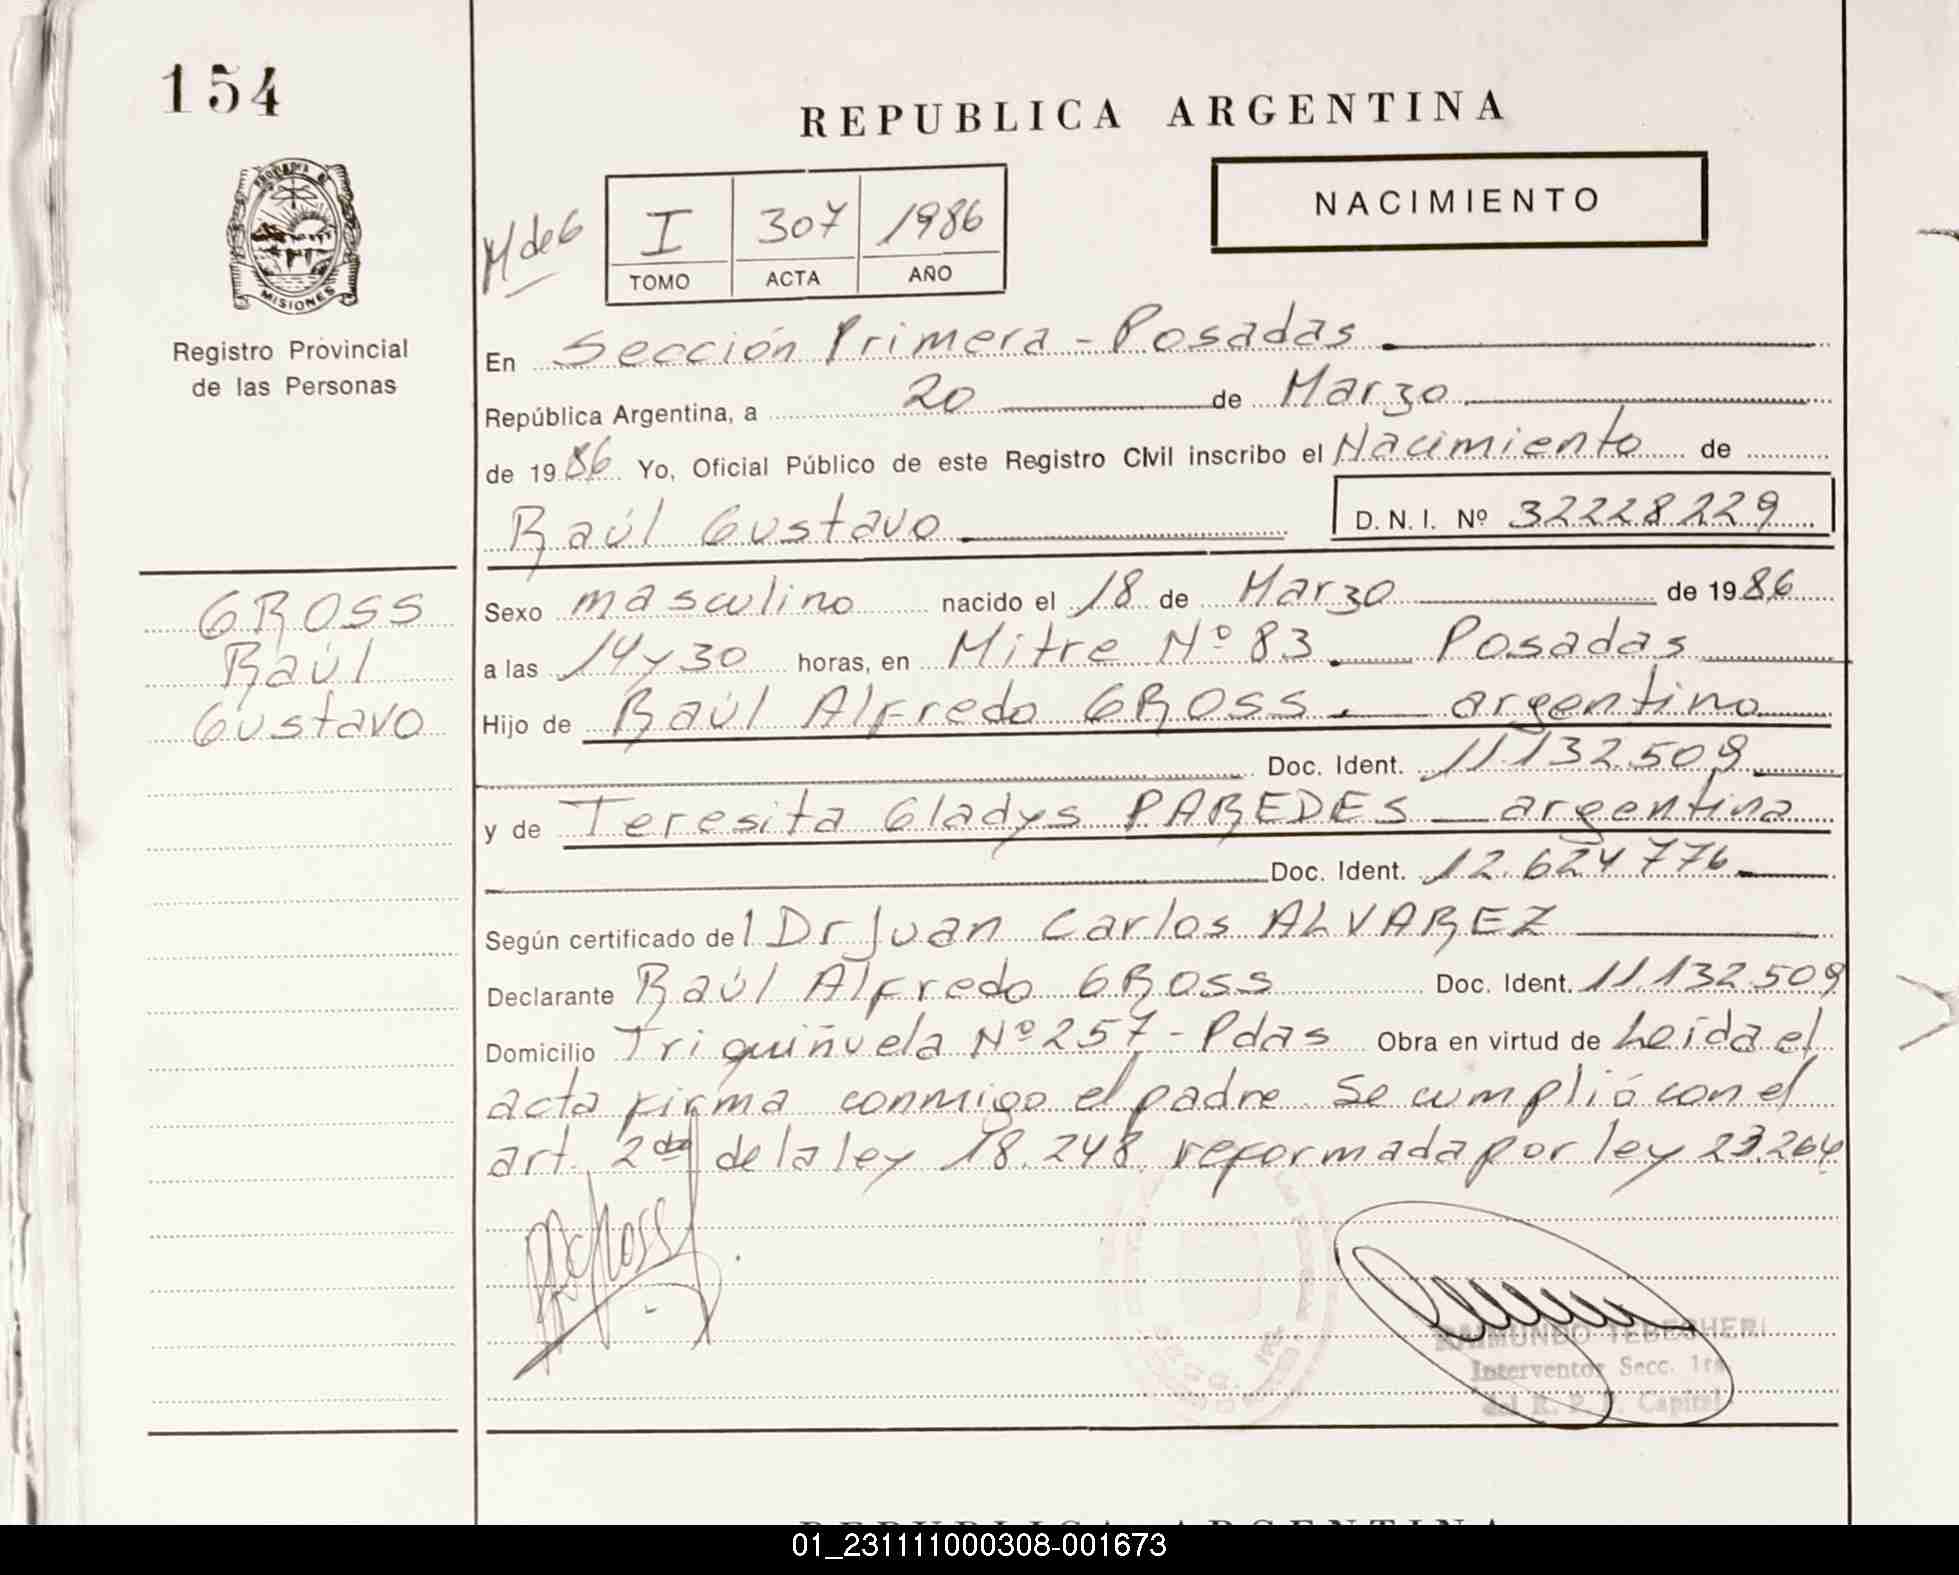 154
REPUBLICA ARGENTINA
NACIMIENTO
M de 6
I 307 1986
TOMO ACTA AÑO
MISIONES
Registro Provincial
de las Personas
En Sección Primera - Posadas
República Argentina, a 20 de Marzo
de 1986 Yo, Oficial Público de este Registro Civil inscribo el Nacimiento de
Raúl Gustavo D.N.I. Nº 32228229
GROSS
Raúl
Gustavo
Sexo masculino nacido el 18 de Marzo de 1986
a las 14 y 30 horas, en Mitre Nº 83. Posadas
Hijo de Raúl Alfredo GROSS. argentino
Doc. Ident. 11.132.509
y de Teresita Gladys PAREDES argentina
Doc. Ident. 12.624776
Según certificado del Dr Juan Carlos ALVAREZ
Declarante Raúl Alfredo GROSS Doc. Ident. 11.132.509
Domicilio Triquiñuela Nº 257 - Pdas Obra en virtud de Leída el
acta firma conmigo el padre. Se cumplió con el
art. 2do de la ley 18.248 reformada por ley 23.264
RAIMUNDO
Interventor Secc. 1ra
del R. P. P. Capital
REPUBLICA ARGENTINA
01_231111000308-001673